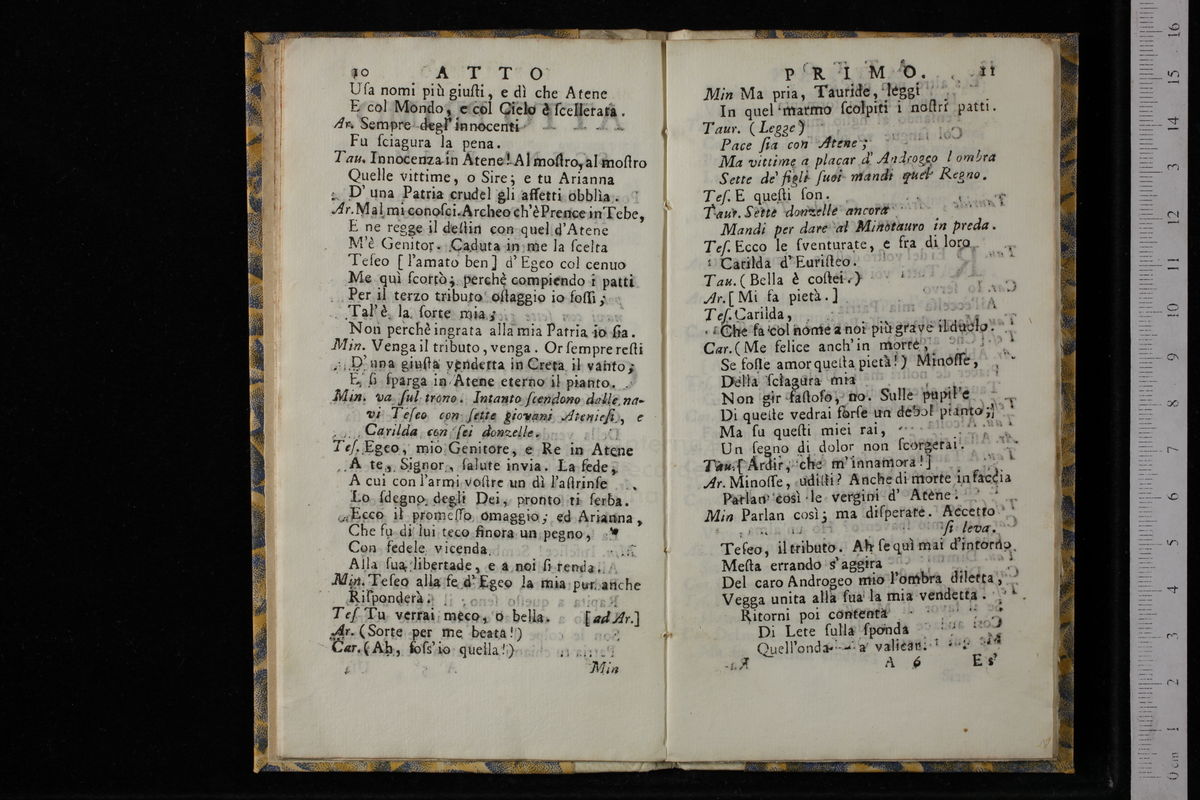 10 ATTO
Uſa nomi più giuſti, e dì che Atene
E col Mondo, e col Cielo è ſcellerata.
Ar. Sempre degl'innocenti
Fu ſciagura la pena.
Tau. Innocenza in Atene! Al moſtro, al moſtro
Quelle vittime, o Sire; e tu Arianna
D'una Patria crudel gli affetti obblìa.
Ar. Mal mi conoſci. Archeo ch'è Prence in Tebe,
E ne regge il deſtin con quel d'Atene
M'è Genitor. Caduta in me la ſcelta
Teſeo [l'amato ben] d'Egeo col cenno
Me quì ſcortò; perchè compiendo i patti
Per il terzo tributo oſtaggio io foſſi;
Tal'è la ſorte mia;
Non perchè ingrata alla mia Patria io ſia.
Min. Venga il tributo, venga. Or ſempre reſti
D'una giuſta vendetta in Creta il vanto;
E, ſi ſparga in Atene eterno il pianto.
Min. va ſul trono. Intanto ſcendono dalle na-
vi Teſeo con ſette giovani Atenieſi, e
Carilda con ſei donzelle.
Teſ. Egeo, mio Genitore, e Re in Atene
A te, Signor, ſalute invia. La fede,
A cui con l'armi voſtre un dì l'aſtrinſe
Lo ſdegno degli Dei, pronto ti ſerba.
Ecco il promeſſo omaggio, ed Arianna,
Che fu di lui teco finora un pegno,
Con fedele vicenda
Alla ſua libertade, e a noi ſi renda.
Min. Teſeo alla fe d'Egeo la mia pur anche
Riſponderà.
Teſ Tu verrai meco, o bella. [ad Ar.]
Ar. (Sorte per me beata!)
Car. (Ah, foſs'io quella!)
Min
PRIMO. 11
Min Ma pria, Tauride, leggi
In quel marmo ſcolpiti i noſtri patti.
Taur. (Legge)
Pace ſia con Atene;
Ma vittime a placar d'Androgeo l ombra
Sette de' figli ſuoi mandi quel Regno.
Teſ. E queſti ſon.
Taur. Sette donzelle ancora
Mandi per dare al Minotauro in preda.
Teſ. Ecco le ſventurate, e fra di loro
Carilda d'Euriſteo.
Tau. (Bella è coſtei.)
Ar. [Mi fa pietà.]
Teſ. Carilda,
Che fa col nome a noi più grave il duolo.
Car. (Me felice anch'in morte,
Se foſſe amor queſta pietà!) Minoſſe,
Della ſciagura mia
Non gir faſtoſo, no. Sulle pupil'e
Di queſte vedrai forſe un debol pianto;
Ma ſu queſti miei rai,
Un ſegno di dolor non ſcorgerai.
Tau. [Ardir, che m'innamora!]
Ar. Minoſſe, udiſti? Anche di morte in faccia
Parlan così le vergini d'Atene.
Min Parlan così; ma diſperate. Accetto
ſi leva.
Teſeo, il tributo. Ah ſe quì mai d'intorno
Meſta errando s'aggira
Del caro Androgeo mio l'ombra diletta,
Vegga unita alla ſua la mia vendetta.
Ritorni poi contenta
Di Lete ſulla ſponda
Quell'onda a valicar.
A 6 E s'